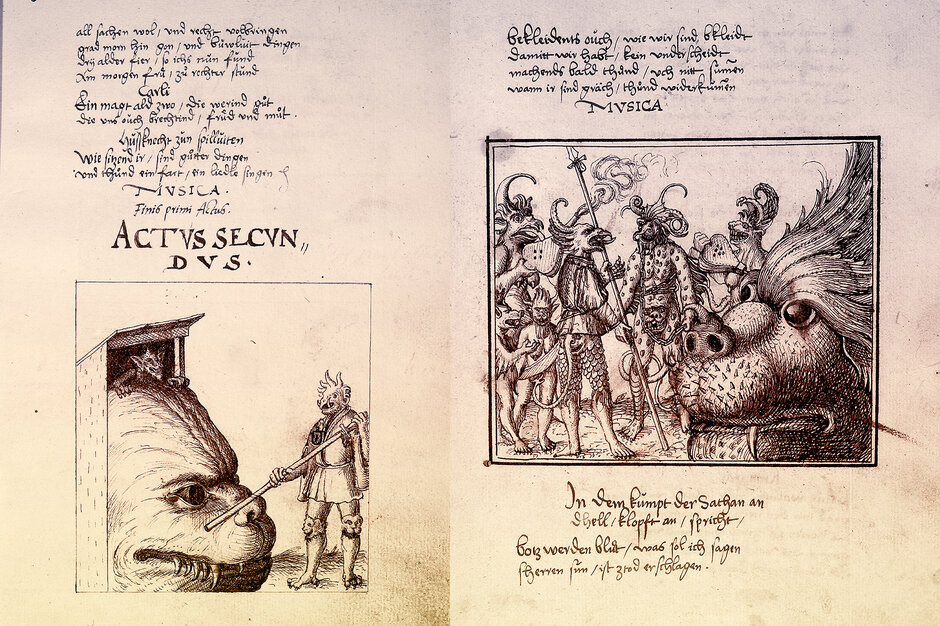 all sachen wol / und recht volbringen
grad mom hin gon / und buwluit dingen
dry alder fier / so ichs nun fund
Am morgen frů / zů rechter stund
Carli
Ein magt ald zwo / die werind gůt
die uns ouch brechtind / frůd und můt.
Hussknecht zun spilluiten
Wie sitzend ir / sind gůtter dingen
und thůnd ein fart / ein liedle singen
MVSICA.
Finis primi Actus.
ACTVS SECVN„
DVS.
bekleidents ouch / wie wir sind bkleidt
damitt wir habt / kein underscheidt
machends bald thůnd / och nitt sumen
wann ir sind gräch / thůnd widerkumen
MVSICA
In dem kumpt der Sathan an
dhell / klopft an / spricht /
botz werden blůt / was sol ich sagen
sherren sun / ist ztod erschlagen.